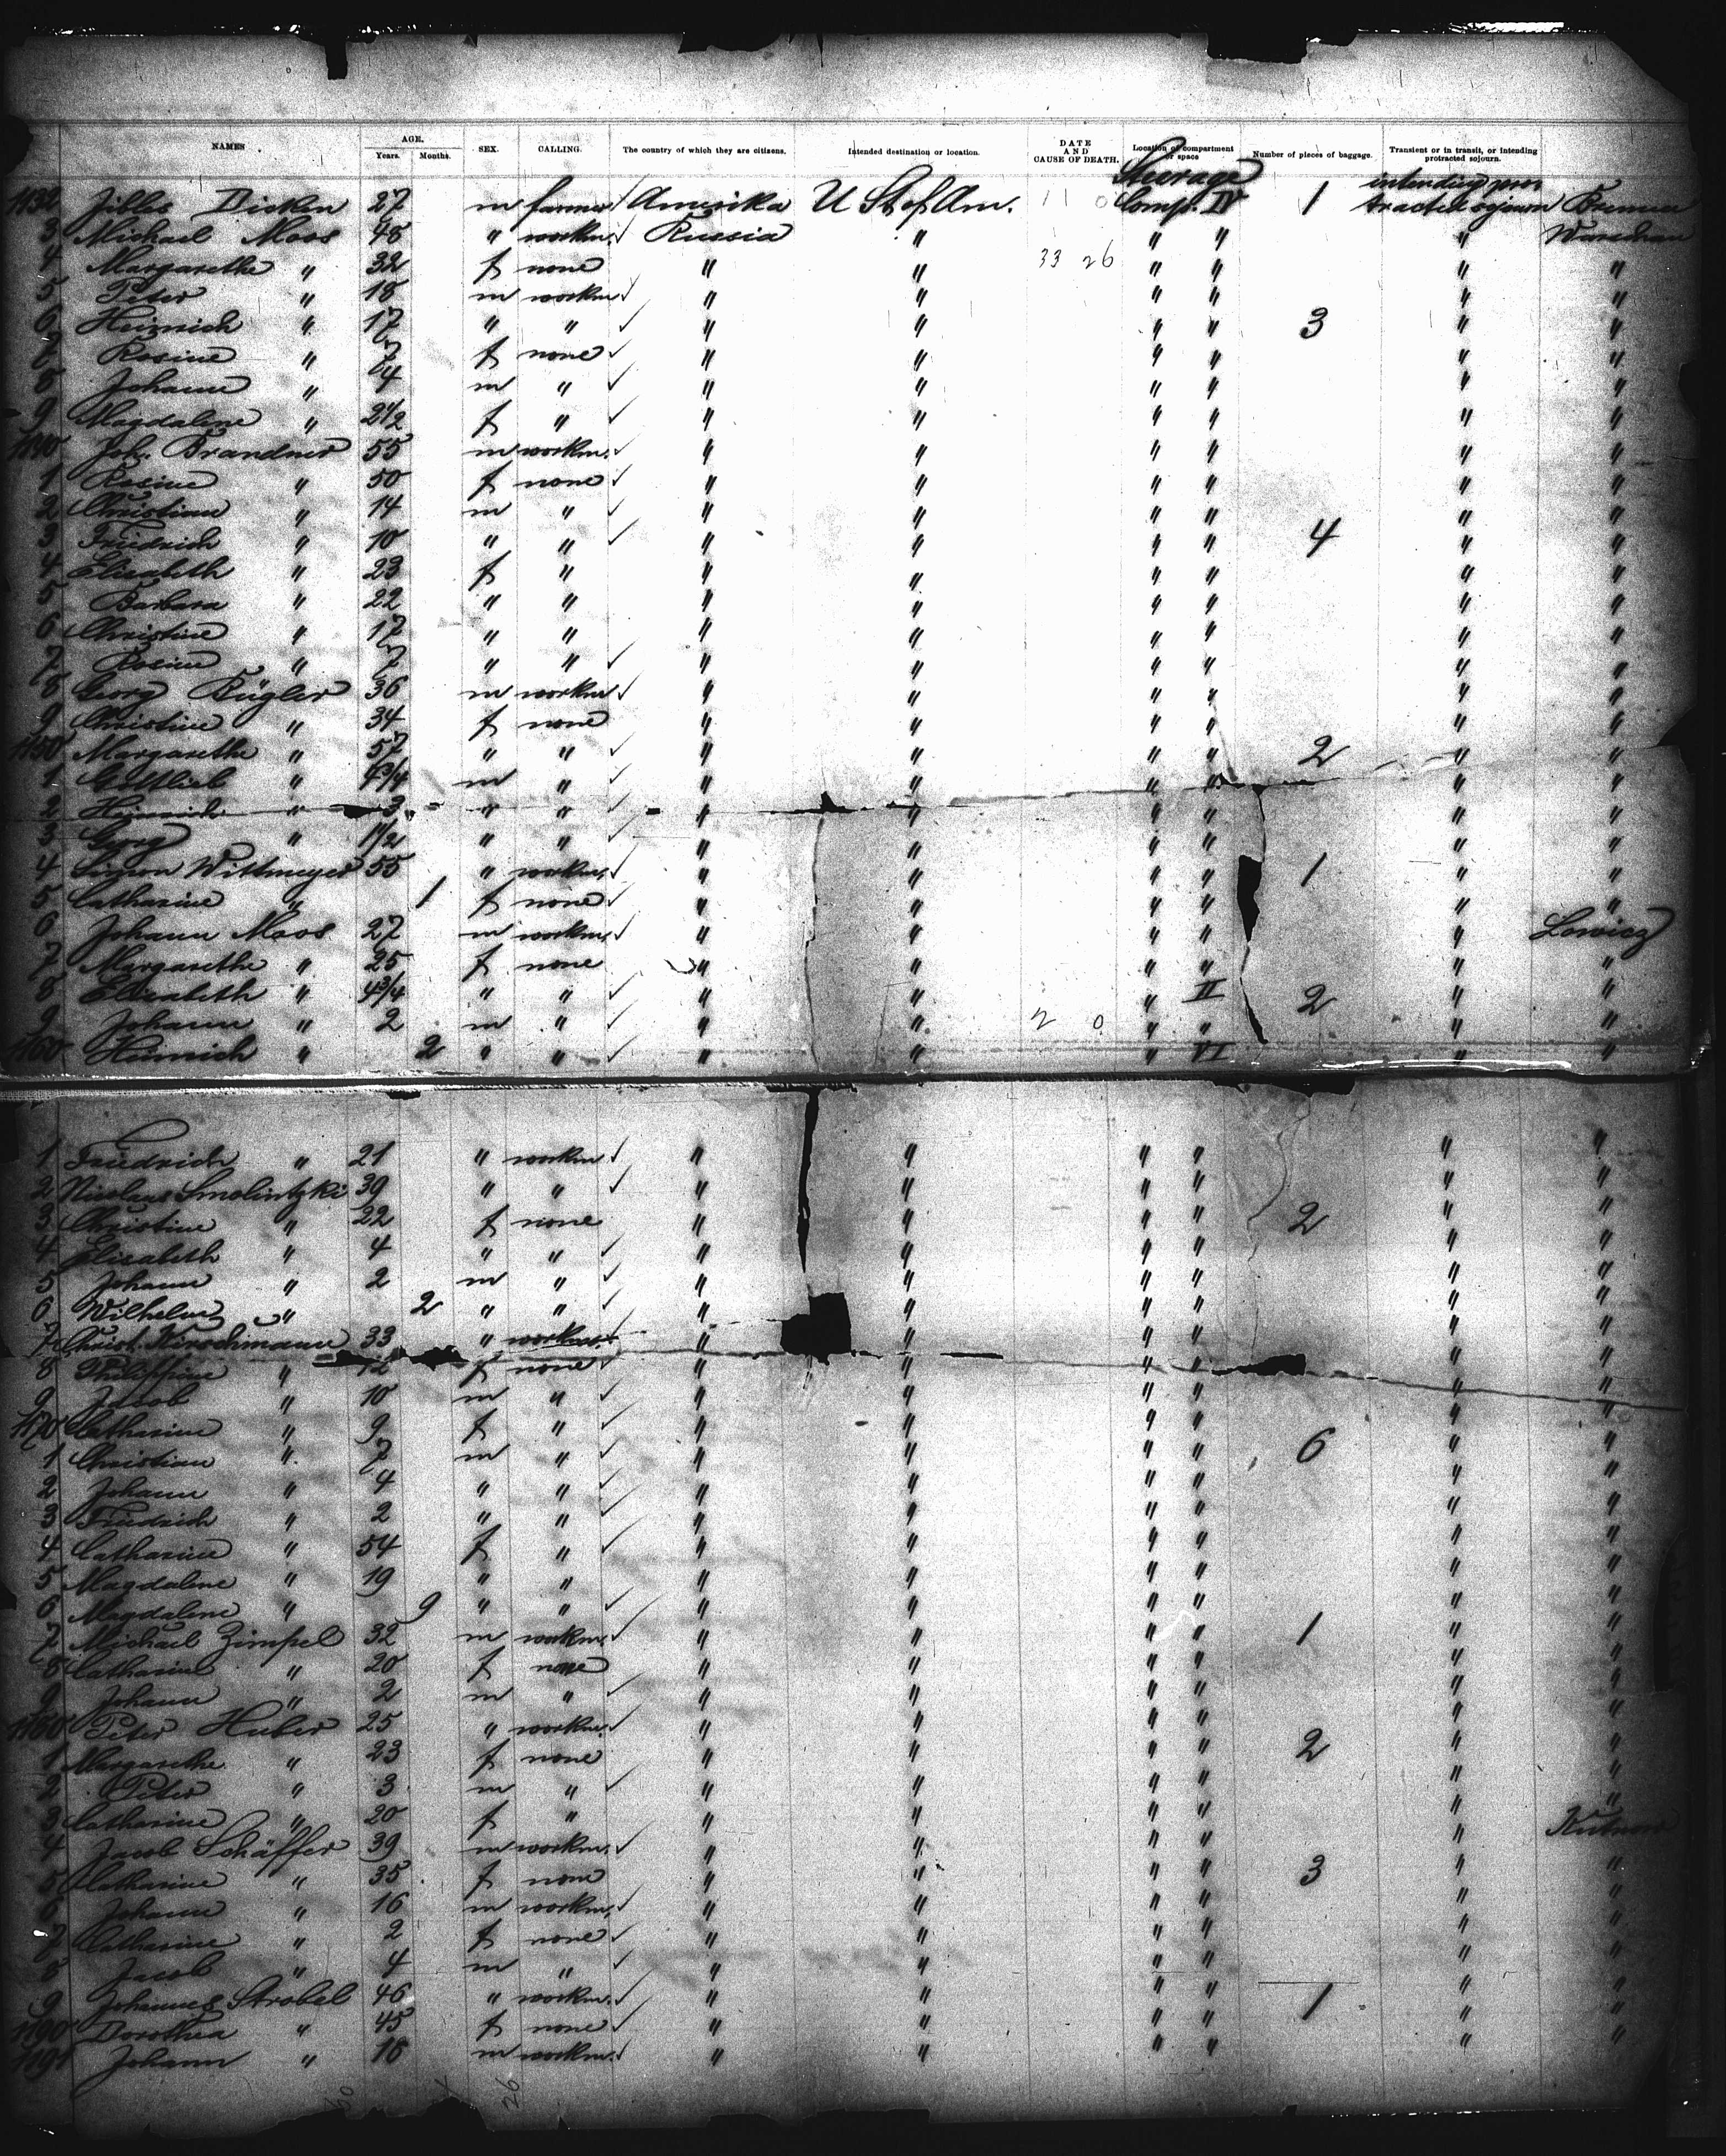 NAMES AGE. Years. Months. SEX. CALLING. The country of which they are citizens. Intended destination or location. DATE AND CAUSE OF DEATH. Location of compartment or space Number of pieces of baggage. Transient or in transit, or intending protracted sojourn.
Steerage intending pro
27 m farmer Amerika U St of Am. 11 0 Comp. IV 1 tracted sojourn Bremen
3 Michael Moos 48 " workm. Russia " " " " Warschau
4 Margarethe " 32 f none " " 33 26 " " " "
5 Peter " 18 m workm " " " " " "
6 Heinrich " 17 " " " " " " 3 " "
7 Rosine " 7 f none " " " " " "
8 Johann " 4 m " " " " " " "
9 Magdalene " 2 1/2 f " " " " " " "
1140 Joh. Brandner 55 m workm. " " " " " "
1 Rosine " 50 f none " " " " " "
2 Christian " 14 m " " " " " " "
3 Friedrich " 10 " " " " " " 4 " "
4 Elisabeth " 23 f " " " " " " "
5 Barbara " 22 " " " " " " " "
6 Christine " 17 " " " " " " " "
7 Rosine " 7 " " " " " " " "
8 Georg Bügler 36 m workm " " " " " "
9 Christine " 34 f none " " " " " "
1150 Margarethe " 57 " " " " " " 2 " "
1 Gottlieb " 4 3/4 m " " " " " " "
2 Heinrich " 3 " " " " " " " "
3 Georg " 1 1/2 " " " " " " " "
4 Simon Wittmeyer 55 " workm. " " " " 1 " "
5 Catharine " 1 f none " " " " " "
6 Johann Moos 27 m workm. " " " " " Lowicz
7 Margarethe " 25 f none " " " " " "
8 Elisabeth " 4 3/4 " " " " " II 2 " "
9 Johann " 2 m " " " 2 0 " " " "
1160 Heinrich " 2 " " " " " VI " "
1 Friedrich " 21 " workm " " " " " "
2 Nicolaus Smolintzki 39 " " " " " " " "
3 Christine " 22 f none " " " " 2 " "
4 Elisabeth " 4 " " " " " " " "
5 Johann " 2 m " " " " " " "
6 Wilhelm " 2 " " " " " " " "
7 Christ. Hirschmann 33 " workm. " " " " "
8 Philippine " 12 f none " " " " "
9 Jacob " 10 m " " " " " " "
1170 Catharine " 9 f " " " " " " "
1 Christian " 7 m " " " " " 6 " "
2 Johann " 4 " " " " " " " "
3 Friedrich " 2 " " " " " " " "
4 Catharine " 54 f " " " " " " "
5 Magdalene " 19 " " " " " " " "
6 Magdalene " 9 " " " " " " " "
7 Michael Zimpel 32 m workm. " " " " 1 " "
8 Catharine " 20 f none " " " " " "
9 Johann " 2 m " " " " " " "
1180 Peter Huber 25 " workm. " " " " " "
1 Margarethe " 23 f none " " " " 2 " "
2 Peter " 3 m " " " " " " "
3 Catharine " 20 f " " " " " " "
4 Jacob Schäffer 39 m workm. " " " " "
5 Catharine " 35 f none " " " " 3 " "
6 Johann " 16 m workm. " " " " " "
7 Catharine " 2 f none " " " " " "
8 Jacob " 4 m " " " " " " "
9 Johannes Strobel 46 " workm. " " " " 1 " "
1190 Dorothea " 45 f none " " " " " "
1191 Johann " 18 m workm. " " " "
26